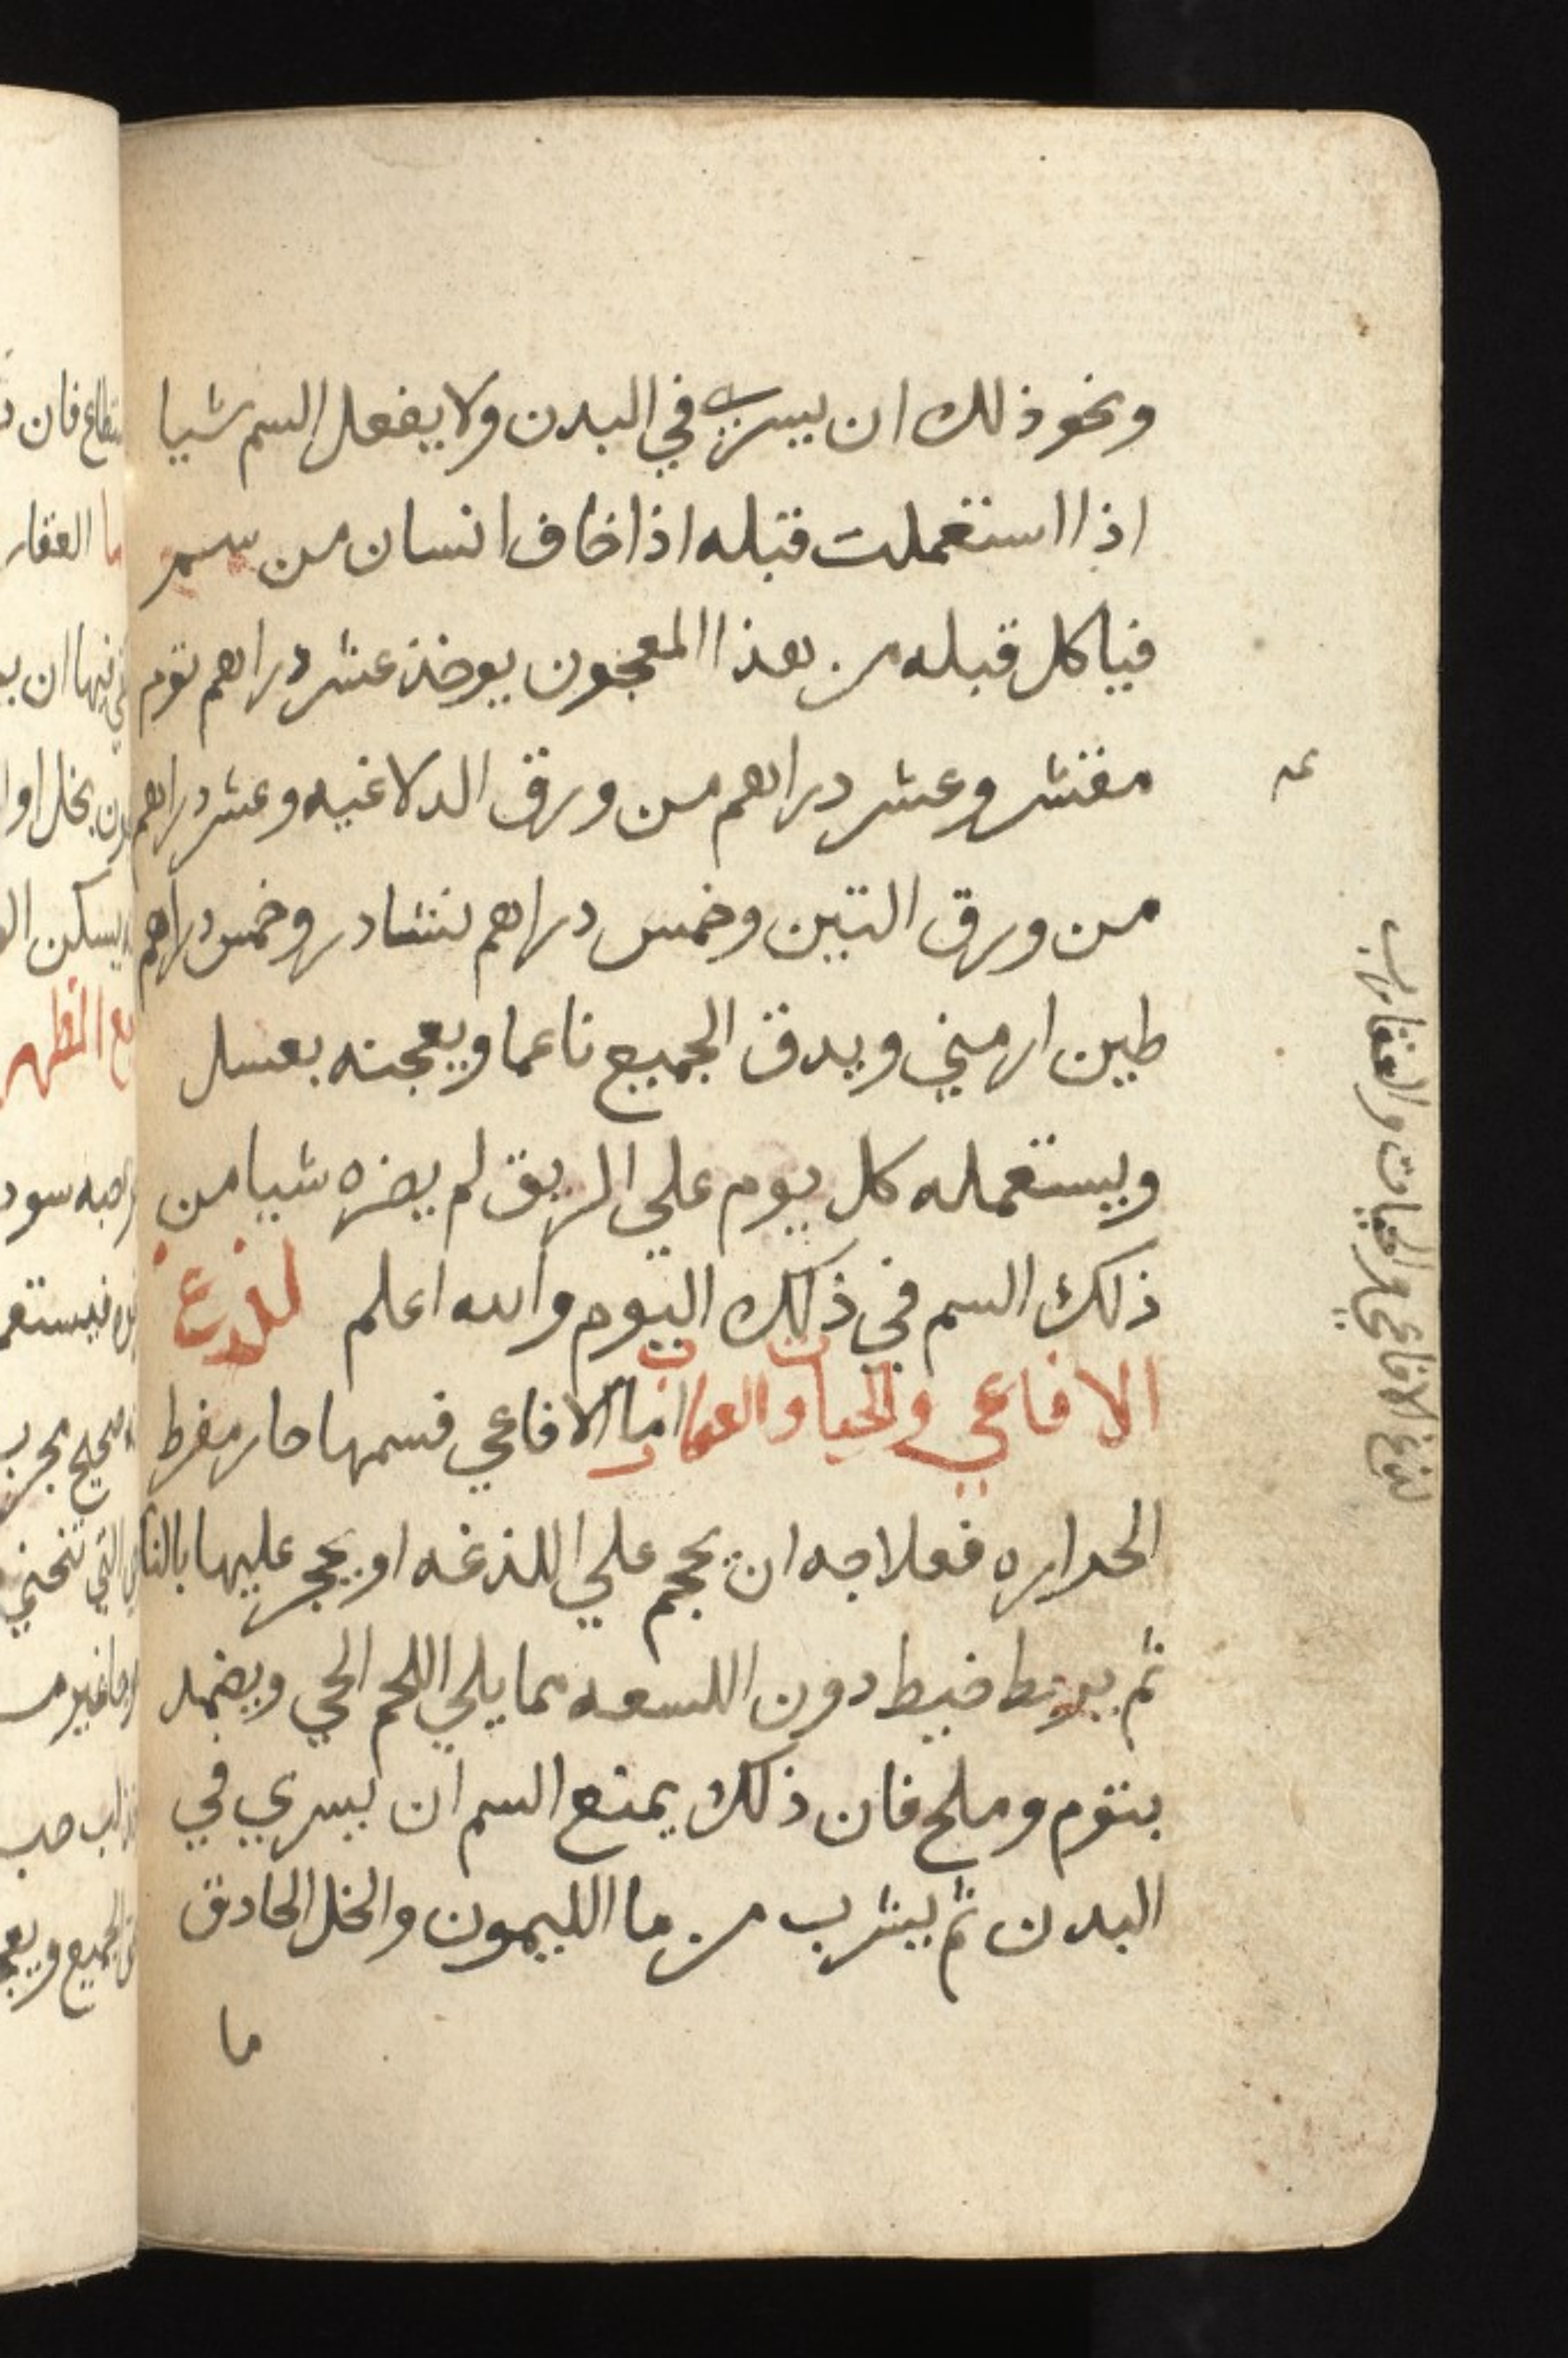 ونحو ذلك ان يسري في البدن ولا يفعل السم شيا
اذا استعملت قبله اذا خاف انسان من سم
فياكل قبله من هذا المعجون يوخذ عشر دراهم توم
مقشر وعشر دراهم من ورق الدلاغيه وعشر دراهم
من ورق التين وخمس دراهم نشادر وخمس دراهم
طين ارميني ويدق الجميع ناعما ويعجنه بعسل
ويستعمله كل يوم علي الريق لم يضره شيا من
ذلك السم في ذلك اليوم والله اعلم لدغ
الافاعي والحيات والعقارب اما الافاعي فسمها حار مفرط
الحراره فعلاجه ان يحجم علي اللذغه او يحجر عليها بالنار
ثم يربط خيط دون اللسعه مما يلي اللحم الحي ويضمد
بتوم وملح فان ذلك يمنع السم ان يسري في
البدن ثم يشرب من ما الليمون والخل الحادق
ما
لدغ الافاعي والحيات والعقارب
العقار
فان
فيها ان
بخل او
يسكن
سود
فيستعم
صحيح مجرب
التي
غير
حب
الجميع